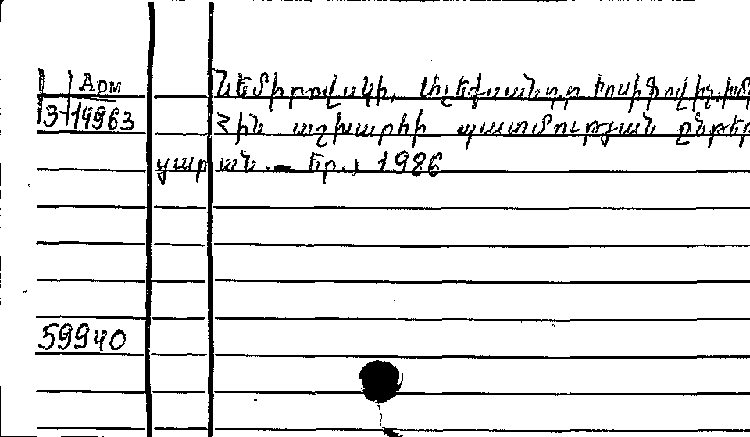 Арм
Նեմիրովսկի, Ալեքսանդր Իոսիֆովիչ.
3-14963 Հին աշխարհի պատմության ընթեր
ցարան. — Եր., 1986
59940